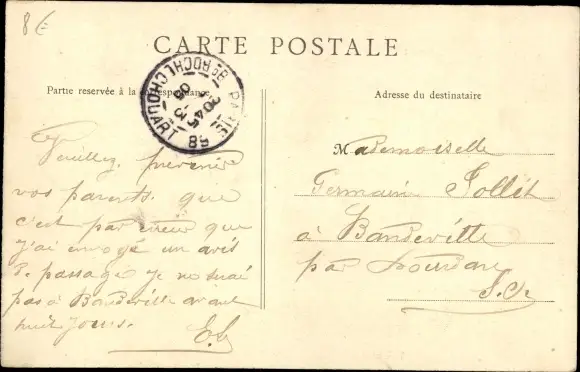 8€
CARTE POSTALE
Partie reservée à la correspondance
Adresse du destinataire
PARIS 68
Bd ROCHECHOUART
Veuillez prevenir
vos parents que
c'est par erreur que
j'ai envoyé un avis
de passage je ne serai
pas à Bandeville avant
huit jours.
Mademoiselle
Germain Jollit
à Bandeville
par Dourdan